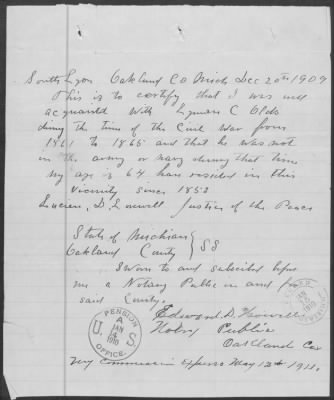 South Lyon Oakland Co Mich Dec 20th 1909
This is to certify that I was well
acquaintd With Lyman C Olds
during the time of the Civil War from
1861 to 1865 and that he was not
in the army or navy during that time
my age is 64 has resided in this
Vicinity since 1852
Lucien, D. Lovewell Justice of the Peace
State of Michian } SS
Oakland County
Sworn to and subscibed before
me a Notary Public in and for
said County.
Edward D.
Notry Public
Oakland Co
My Commission Expires May 12th 1911.
PENSION
A
JAN
14
1910
U. S.
OFFICE.